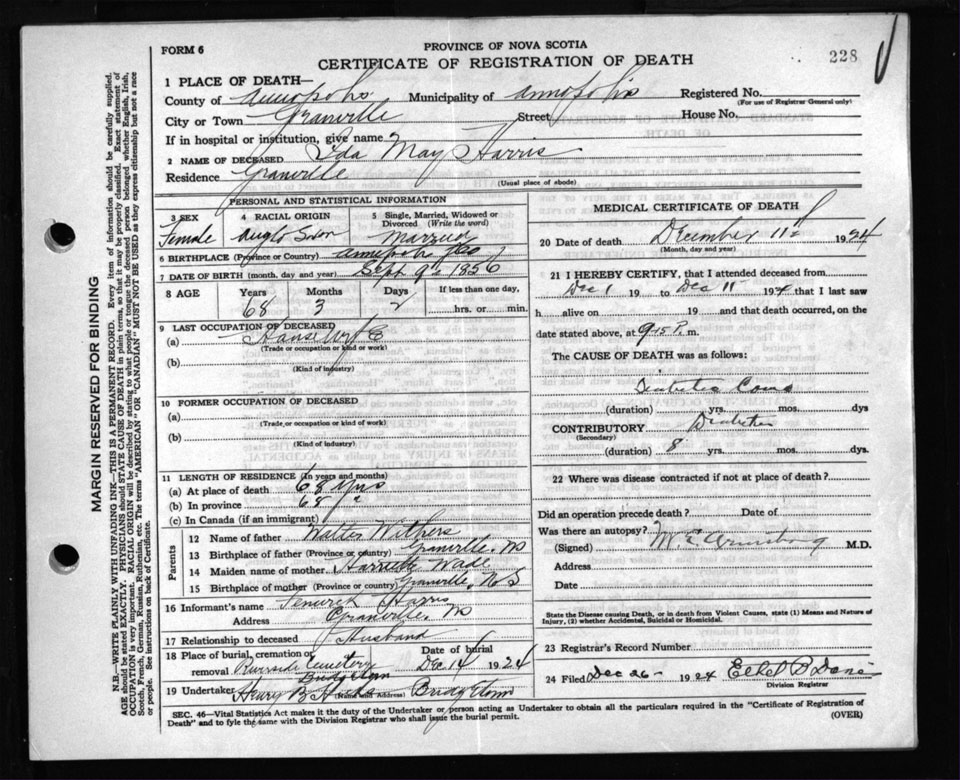 FORM 6
PROVINCE OF NOVA SCOTIA
CERTIFICATE OF REGISTRATION OF DEATH
228
1 PLACE OF DEATH—
County of Annapolis Municipality of Annapolis Registered No.
(For use of Registrar General only)
City or Town Granville Street House No.
If in hospital or institution, give name
2 NAME OF DECEASED Ida May Harris
Residence Granville
(Usual place of abode)
PERSONAL AND STATISTICAL INFORMATION
3 SEX 4 RACIAL ORIGIN 5 Single, Married, Widowed or Divorced (Write the word)
Female Anglo Saxon Married
6 BIRTHPLACE (Province or Country) Annapolis
7 DATE OF BIRTH (month, day and year) Sept 9th 1856
8 AGE Years Months Days If less than one day,
68 3 2 hrs. or min.
9 LAST OCCUPATION OF DECEASED
(a) Housewife
(Trade or occupation or kind or work)
(b)
(Kind of industry)
10 FORMER OCCUPATION OF DECEASED
(a)
(Trade, or occupation or kind of work)
(b)
(Kind of industry)
11 LENGTH OF RESIDENCE (In years and months)
(a) At place of death 68 yrs
(b) In province 68
(c) In Canada (if an immigrant)
Parents
12 Name of father Walter Withers
13 Birthplace of father (Province or country) Granville, NS
14 Maiden name of mother Harriette Wade
15 Birthplace of mother (Province or country) Granville, N S
16 Informant's name Fenwick Harris
Address Granville, NS
17 Relationship to deceased Husband
18 Place of burial, cremation or removal Riverside Cemetery Bridgetown Date of burial Dec 14 1924
19 Undertaker Henry B Hicks (Name and Address) Bridgetown
MEDICAL CERTIFICATE OF DEATH
20 Date of death December 11th 1924
(Month, day and year)
21 I HEREBY CERTIFY, that I attended deceased from
Dec 1 19 to Dec 11 1924 that I last saw
h alive on 19 and that death occurred, on the
date stated above, at 9.15 P. m.
The CAUSE OF DEATH was as follows:
Diabetic Coma
(duration) yrs. mos. dys
CONTRIBUTORY Diabetes
(Secondary)
(duration) 8 yrs. mos. dys.
22 Where was disease contracted if not at place of death?
Did an operation precede death? Date of
Was there an autopsy?
(Signed) M. E. Armstrong M.D.
Address
Date
State the Disease causing Death, or in death from Violent Causes, state (1) Means and Nature of
Injury, (2) whether Accidental, Suicidal or Homicidal.
23 Registrar's Record Number
24 Filed Dec 26 1924 Ethel B
Division Registrar
SEC. 46—Vital Statistics Act makes it the duty of the Undertaker or person acting as Undertaker to obtain all the particulars required in the "Certificate of Registration of
Death" and to fyle the same with the Division Registrar who shall issue the burial permit.
(OVER)
MARGIN RESERVED FOR BINDING
N.B.—WRITE PLAINLY WITH UNFADING INK—THIS IS A PERMANENT RECORD. Every item of information should be carefully supplied.
AGE should be stated EXACTLY. PHYSICIANS should STATE CAUSE OF DEATH in plain terms, so that it may be properly classified. Exact statement of
OCCUPATION is very important. RACIAL ORIGIN will be described by stating to what people or tongue the deceased person belonged whether English, Irish,
Scotch, French, German, Russian, Ruthenian, etc. The terms "AMERICAN" OR "CANADIAN" MUST NOT BE USED as they express citizenship but not a race
or people. See instructions on back of Certificate.